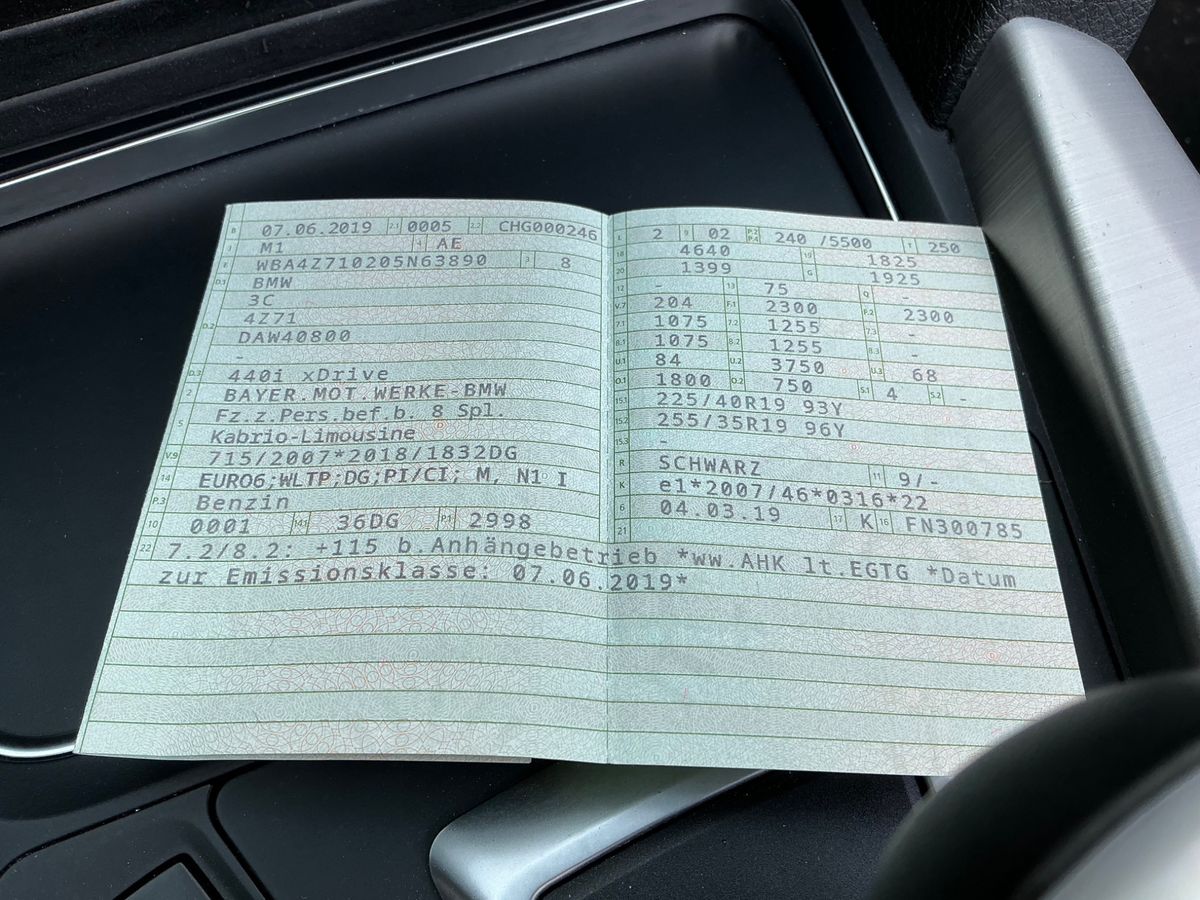 B 07.06.2019 2.1 0005 2.2 CHG000246
J M1 4 AE
E WBA4Z710205N63890 3 8
D.1 BMW
3C
D.2 4Z71
DAW40800
-
D.3 440i xDrive
2 BAYER.MOT.WERKE-BMW
5 Fz.z.Pers.bef.b. 8 Spl.
Kabrio-Limousine
V.9 715/2007*2018/1832DG
14 EURO6;WLTP;DG;PI/CI; M, N1 I
P.3 Benzin
10 0001 14.1 36DG P.1 2998
L 2 9 02 P.2 P.4 240 /5500 T 250
18 4640 19 1825
20 1399 G 1925
12 - 13 75 Q -
V.7 204 F.1 2300 F.2 2300
7.1 1075 7.2 1255 7.3 -
8.1 1075 8.2 1255 8.3 -
U.1 84 U.2 3750 U.3 68
O.1 1800 O.2 750 S.1 4 S.2 -
15.1 225/40R19 93Y
15.2 255/35R19 96Y
15.3 -
R SCHWARZ 11 9/-
K e1*2007/46*0316*22
6 04.03.19 17 K 16 FN300785
21
22 7.2/8.2: +115 b.Anhängebetrieb *ww.AHK lt.EGTG *Datum
zur Emissionsklasse: 07.06.2019*